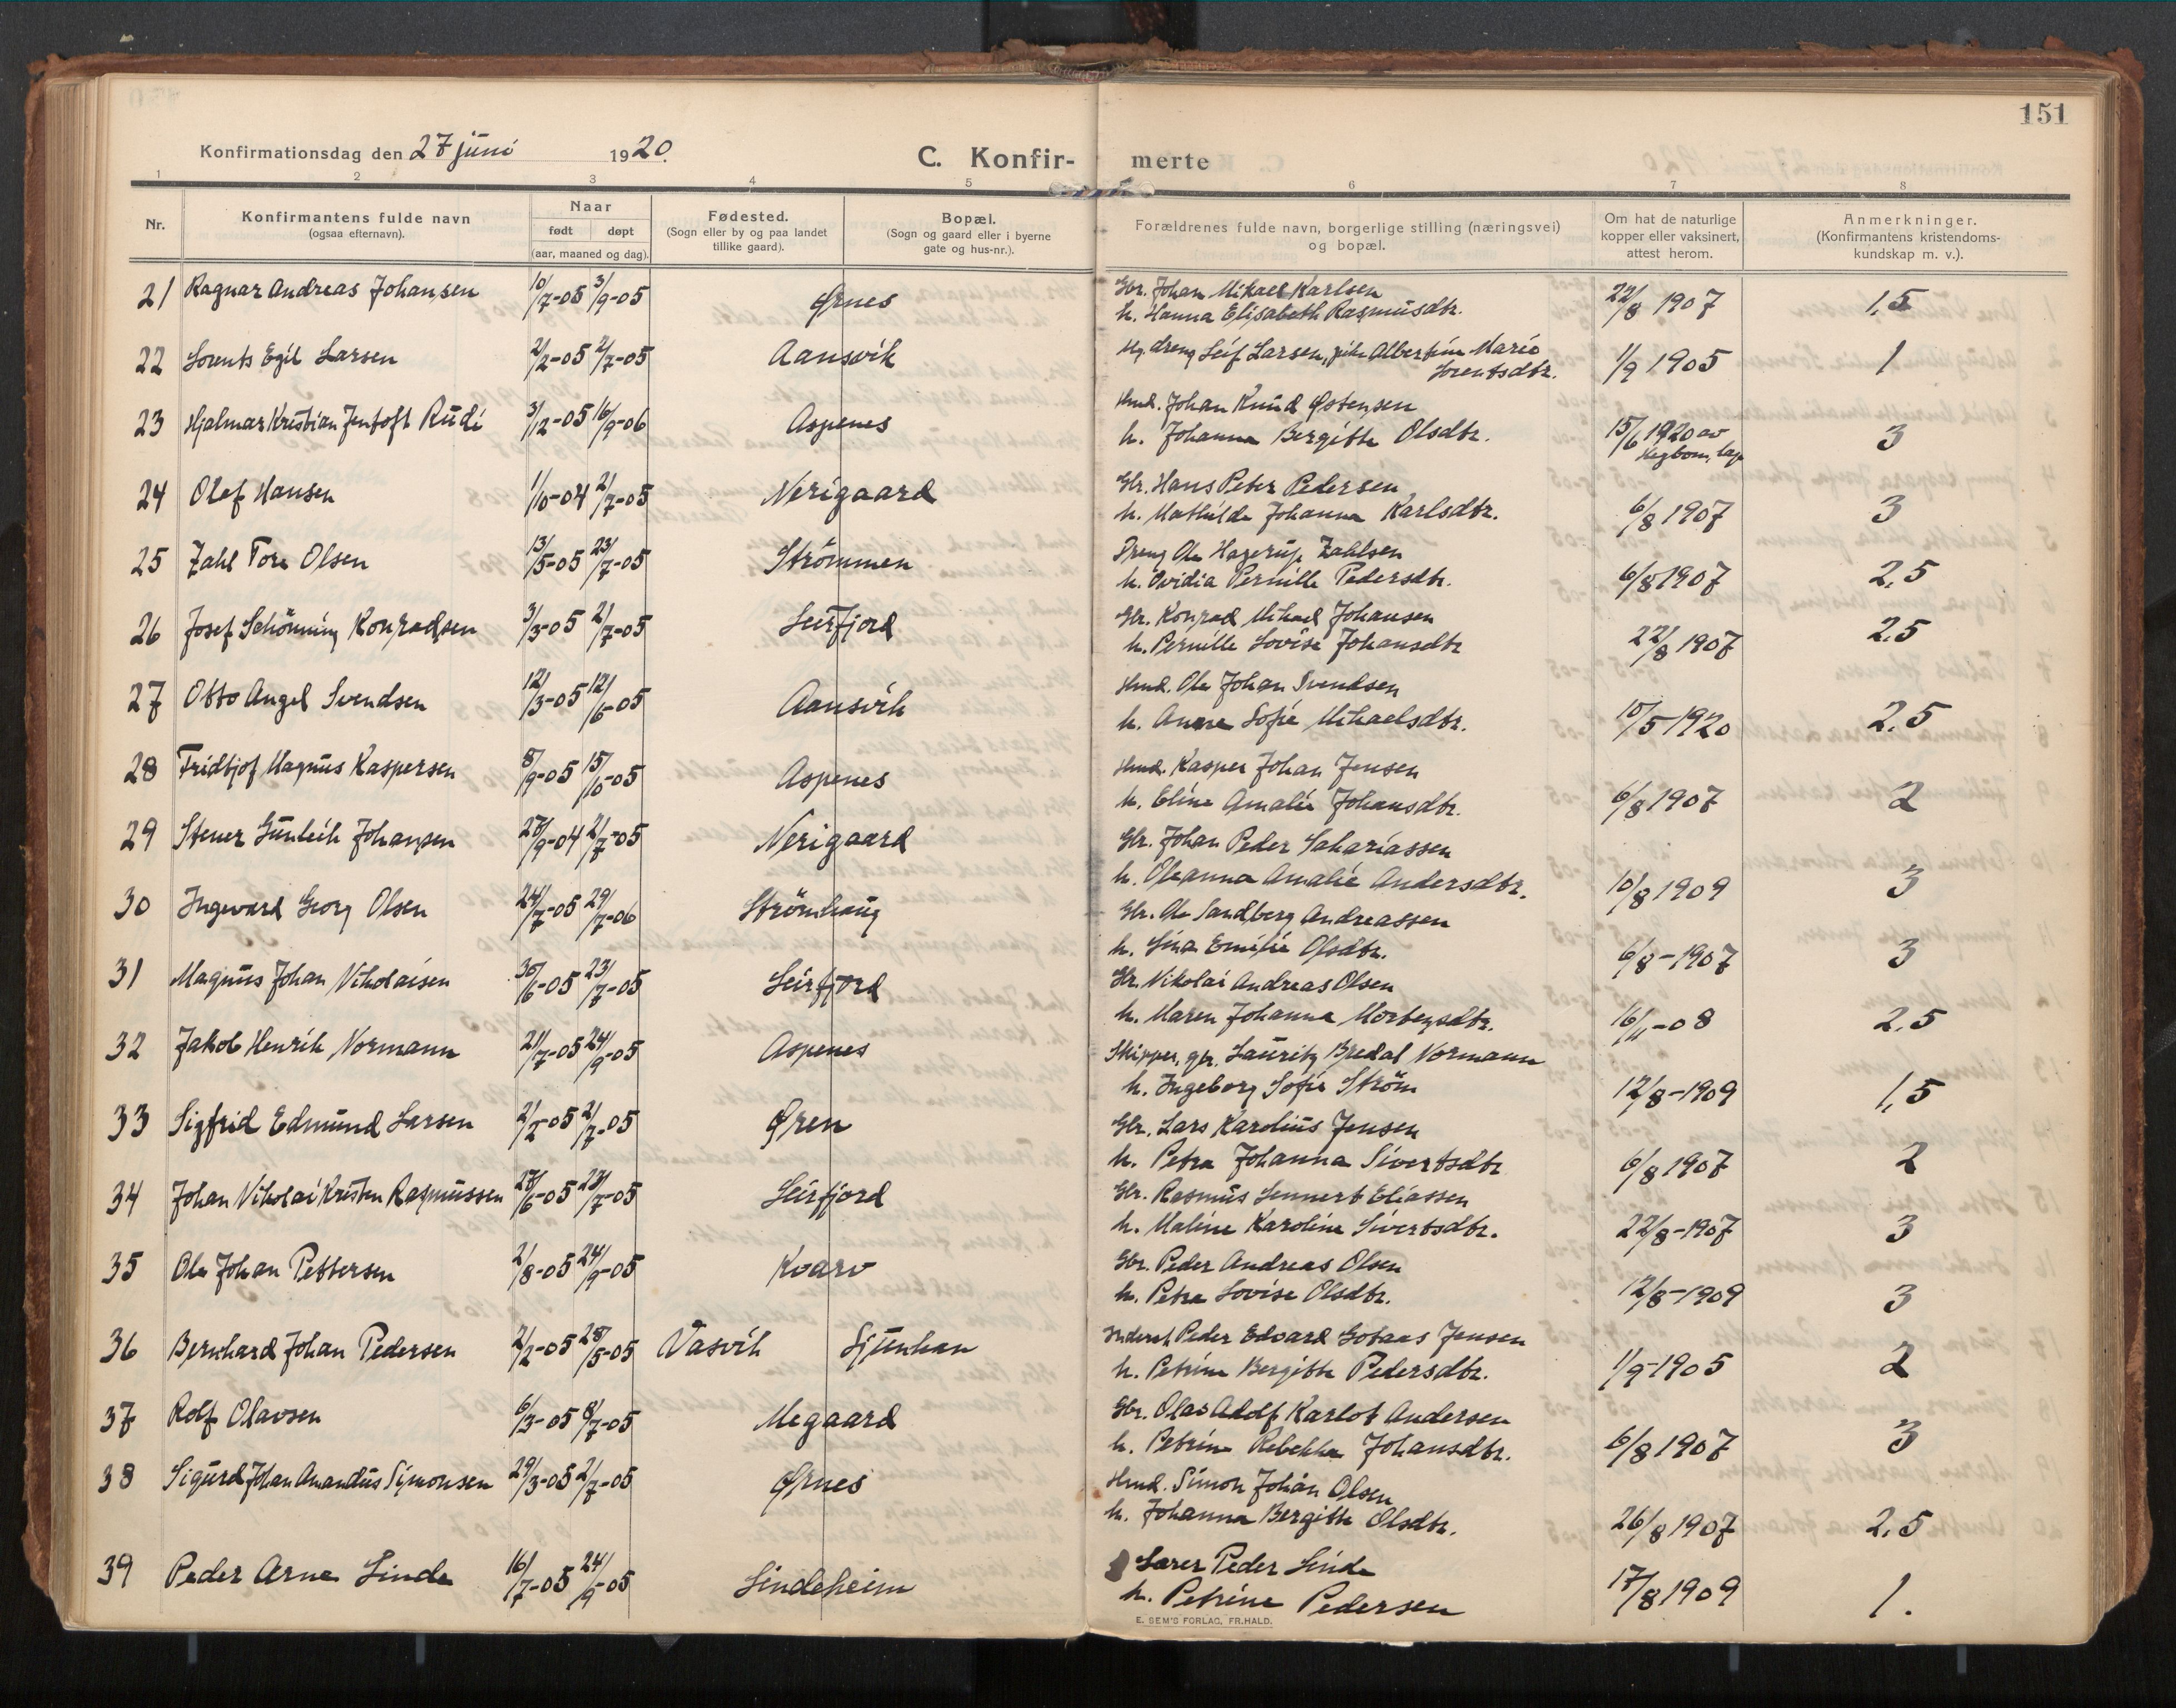 151
Konfirmationsdag den 27 juni 1920.
C. Konfir- merte
1 2 3 4 5 6 7 8
Nr.
Konfirmantens fulde navn
(ogsaa efternavn).
Naar
født døpt
(aar, maaned og dag).
Fødested.
(Sogn eller by og paa landet
tillike gaard).
Bopæl.
(Sogn og gaard eller i byerne
gate og hus-nr.).
Forældrenes fulde navn, borgerlige stilling (næringsvei)
og bopæl.
Om hat de naturlige
kopper eller vaksinert,
attest herom.
Anmerkninger.
(Konfirmantens kristendoms-
kundskap m. v.).
21 Ragnar Andreas Johansen 10/7-05 3/9-05 Ørnes Gbr. Johan Mikael Karlsen 22/8 1907 1,5
h. Hanna Elisabeth Rasmusdtr.
22 Lorents Egil Larsen 2/2-05 2/7-05 Aansvik Ug. dreng Leif Larsen, pike Albertine Marie 1/9 1905 1
Lorentsdtr.
23 Hjalmar Kristian Jentoft Rudi 3/2-05 16/9-06 Aspenes Hmd. Johan Knud Østensen 15/6 1920 av 3
h. Johanna Bergitte Olsdtr.
24 Olef Hansen 1/10-04 2/7-05 Nerigaard Gbr. Hans Peter Pedersen 6/8 1907 3
h. Mathilde Johanna Karlsdtr.
25 Zahl Tore Olsen 13/5-05 23/7-05 Strömmen Dreng Ole Hagerup Zahlsen 6/8 1907 2,5
h. Ovidia Pernille Pedersdtr.
26 Josef Schönning Konradsen 3/3-05 2/7-05 Leirfjord Gbr. Konrad Mikael Johansen 22/8 1907 2,5
h. Pernille Lovise Johansdtr
27 Otto Angel Svendsen 12/3-05 12/6-05 Aansvik Hmd. Ole Johan Svendsen 10/5 1920 2,5
h. Anne Sofie Mikaelsdtr.
28 Fridtjof Magnus Kaspersen 8/9-05 15/10-05 Aspenes Hmd. Kasper Johan Jensen 6/8 1907 2
h. Eline Amalie Johansdtr.
29 Stener Gunleik Johansen 27/9-04 2/7-05 Nerigaard Gbr. Johan Peder Sakariassen 10/8 1909 3
h. Oleanna Amalie Andersdtr.
30 Ingevard Georg Olsen 24/7-05 29/7-06 Strömhaug Gbr. Ole Sandberg Andreassen 6/8-1907 3
h. Lina Emilie Olsdtr.
31 Magnus Johan Nikolaisen 30/6-05 23/7-05 Leirfjord Gbr. Nikolai Andreas Olsen 16/11-08 2,5
h. Maren Johanna Mortensdtr.
32 Jakob Henrik Normann 21/7-05 24/9-05 Aspenes Skipper, gbr. Lauritz Bredal Normann 12/8-1909 1,5
h. Ingeborg Sofie Ström
33 Sigfrid Edmund Larsen 2/2-05 2/7-05 Øren Gbr. Lars Karelius Jensen 6/8 1907 2
h. Petra Johanna Sivertsdtr
34 Johan Nikolai Kristen Rasmussen 27/6-05 23/7-05 Leirfjord Gbr. Rasmus Lennert Eliassen 22/8-1907 3
h. Maline Karoline Sivertsdtr.
35 Ole Johan Pettersen 2/8-05 24/9-05 Kvarv Gbr. Peder Andreas Olsen 12/8-1909 3
h. Petra Lovise Olsdtr.
36 Bernhard Johan Pedersen 2/2-05 28/5-05 Vasvik Sjunhan Inderst Peder Edvard Gotaas Jensen 1/9-1905 2
h. Petrine Bergitte Pedersdtr.
37 Rolf Olavsen 6/3-05 8/7-05 Megaard Gbr. Olav Adolf Karlot Andersen 6/8 1907 3
h. Petrine Rebekka Johansdtr.
38 Sigurd Johan Amandus Simonsen 29/3-05 2/7-05 Ørnes Hmd. Simon Johan Olsen 26/8 1907 2,5
h. Johanna Bergitte Olsdtr.
39 Peder Arne Linde 16/7-05 24/9-05 Lindeheim Lærer Peder Linde 17/8 1909 1.
h. Petrine Pedersen
E. SEM'S FORLAG, FR.HALD.